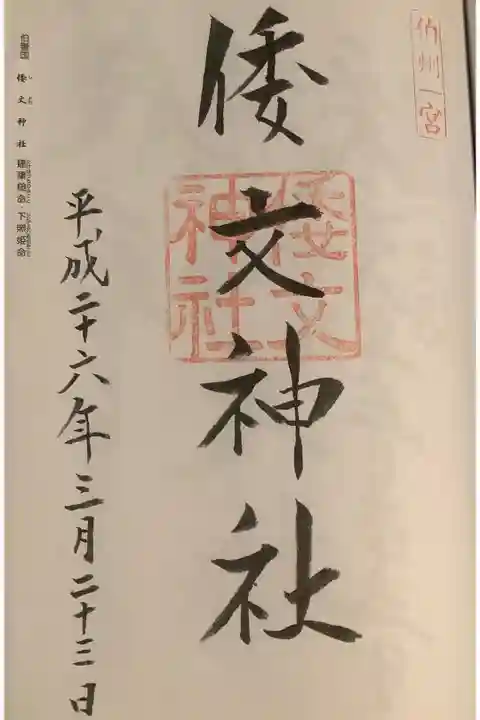 伯州一宮
倭文神社
倭文神社
平成二十六年三月二十三日
伯耆国 倭文神社 建葉槌命・下照姫命